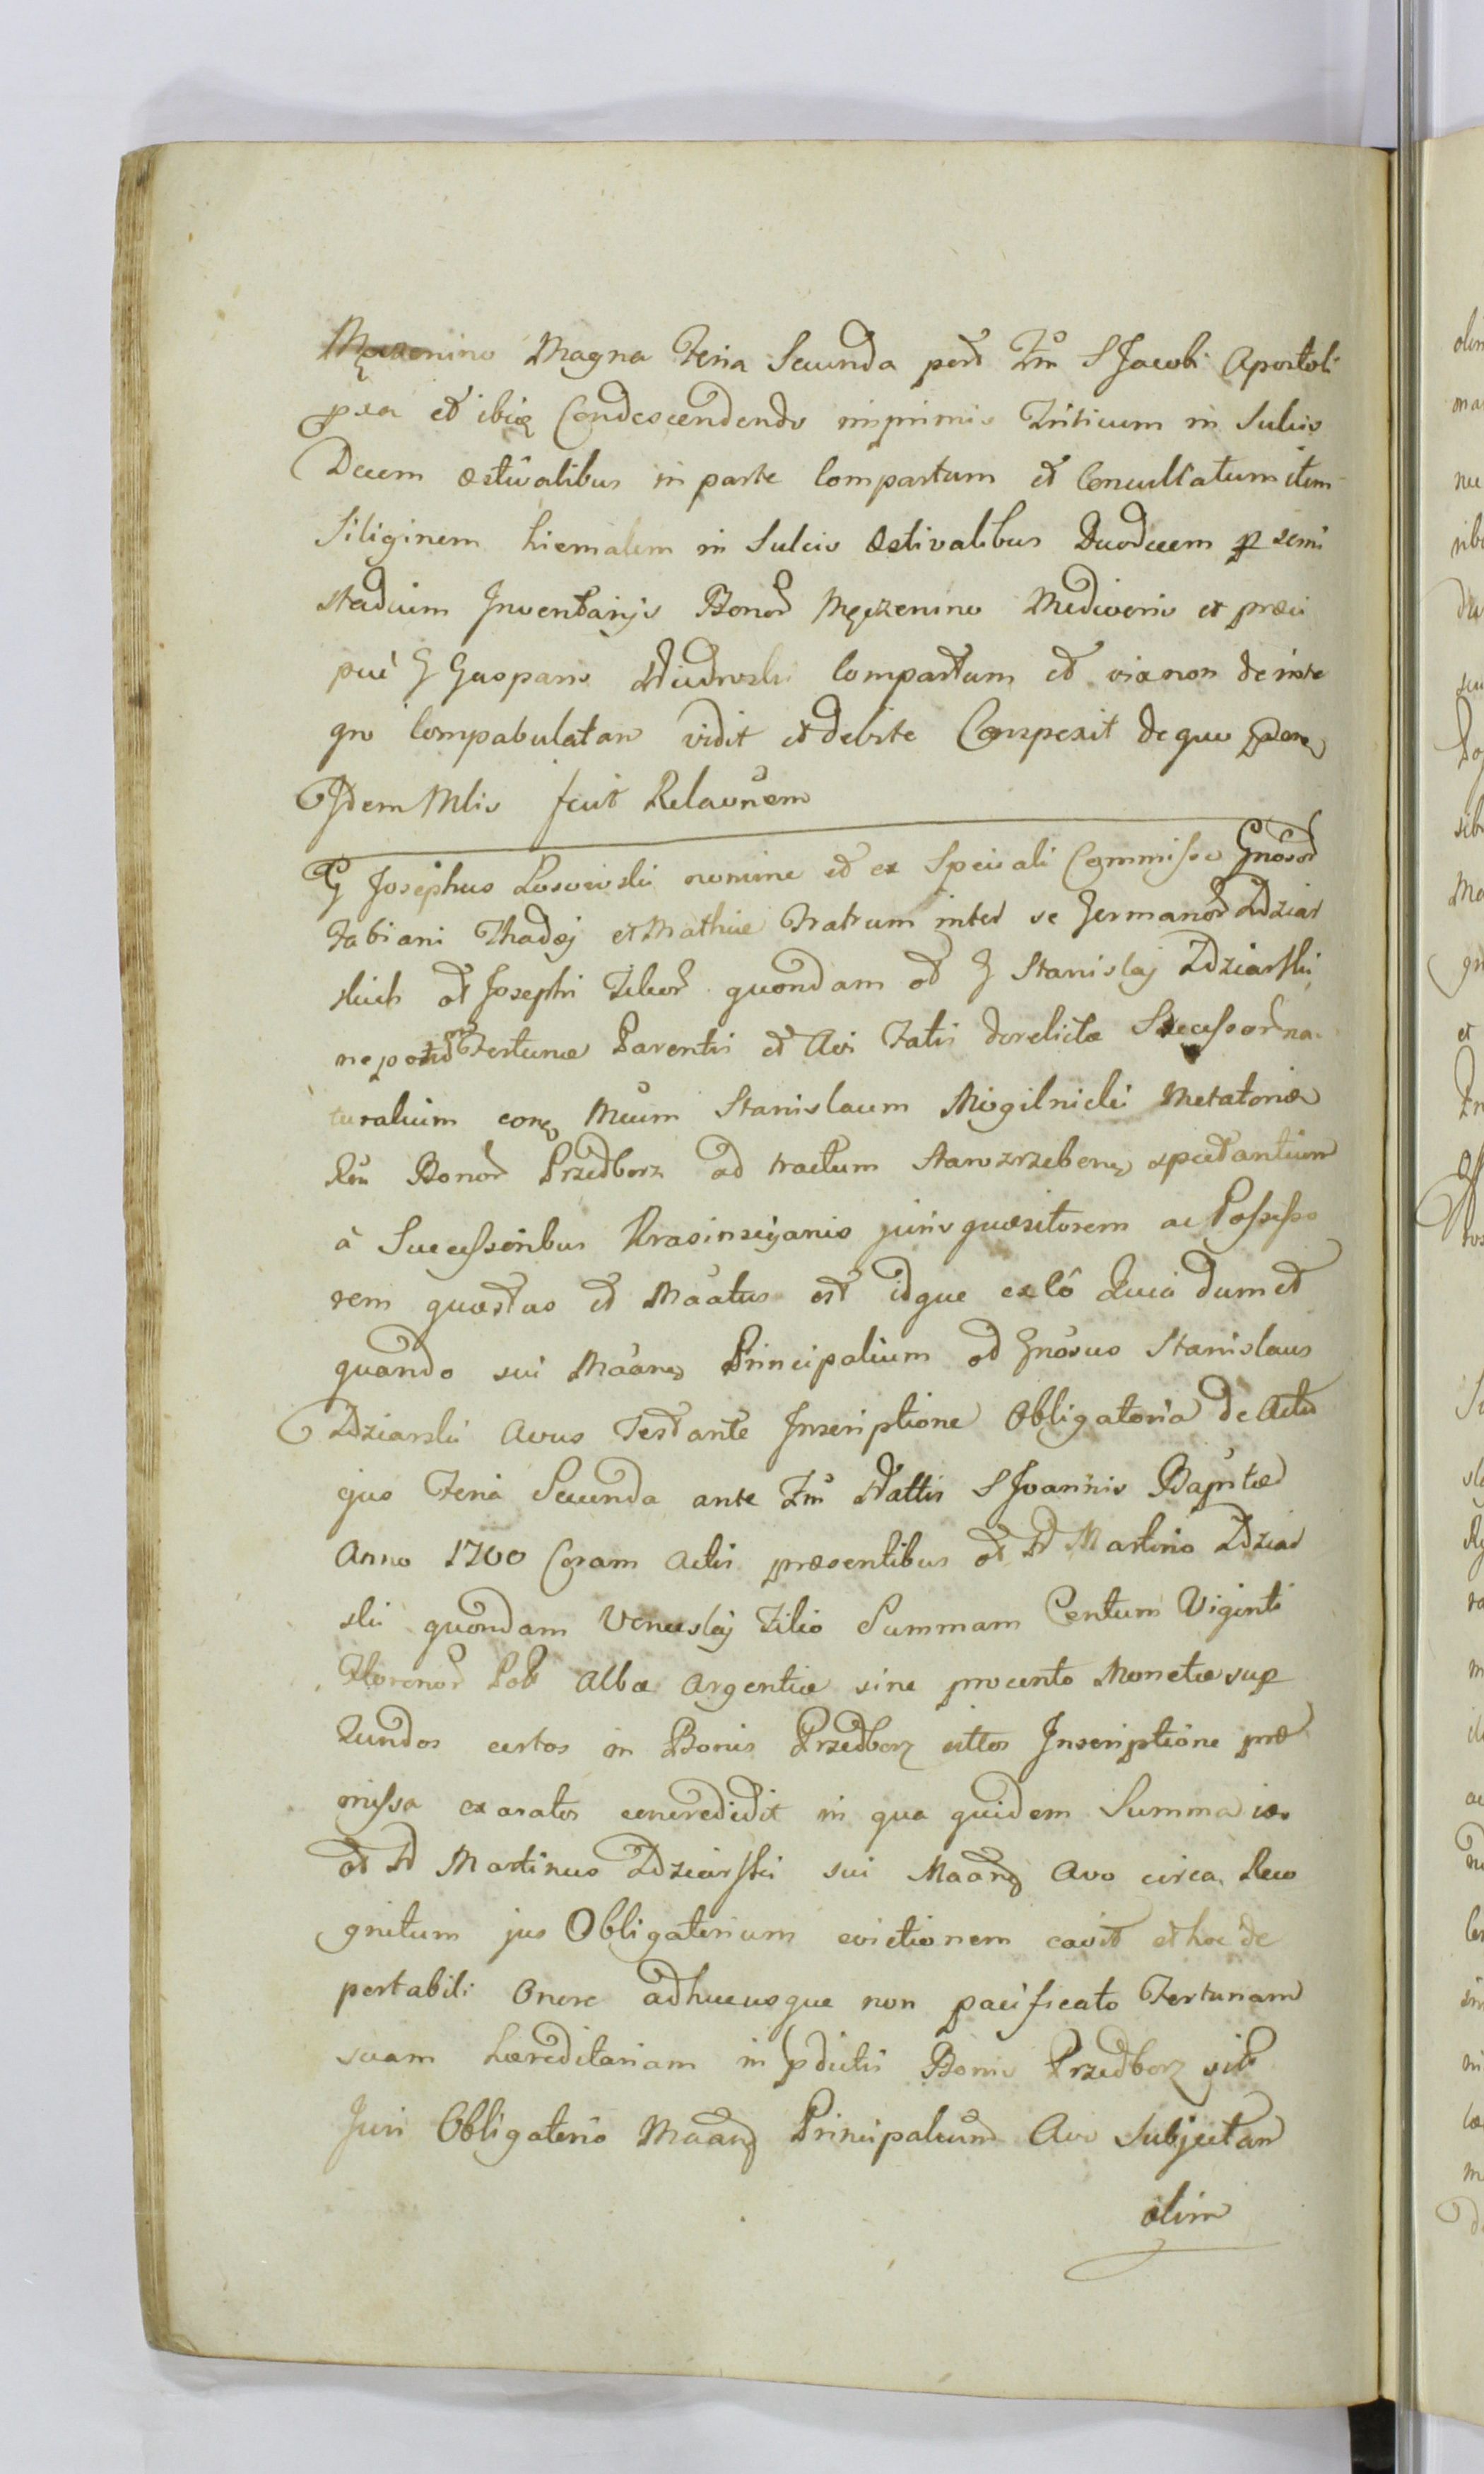 Męczenino Magna Feria Secunda post Fm̃ S Jacobi Apostoli
pxa et ibiq Condescendendo imprimis Triticum in Sulcis
Decem æstivalibus in parte Compastum et Conculcatum item
Siliginem hiemalem in Sulcis Æstivalibus Duodecem p semi
stadium Inventarijs Bonor Męczenino Mediocris et præci
puè G Gaspari Compastum et via non de inte
gro Compabulatam vidit et debite Conspexit de quo
Idem Mlis fecit Relaõnem
G Josephus Losowski nomine et ex Speciali Commisso Gnõsor
Fabiani Thadæj et Mathiæ Fratrum inter se Germanor Zdziar
skich ot Josephi Filior quondam ot G Stanislaj Zdziarski
nepotũ Fortunæ Parentis et Avi Fatis derelictæ Successor na
turalium cong Mcum Stanislaum Mogilnicki Metatoriæ
Rõu Bonor Przedborz ad tractum Starozrzebeng spectantium
à Successoribus Krasinscijanis juris quæsitorem ac Possesso
rem quæstus et Maatus est idque ex eô Quia dum et
quando sui Maang Principalium ot Gnõsus Stanislaus
Zdziarski Avus Testante Inscriptione Obligatoria de Actu
ejus Feria Secunda ante Fm̃ Nattis S Joannis Bapñtæ
Anno 1700 Coram Actis præsentibus ot N Martino Zdziar
ski quondam Venceslaj Filio Summam Centum Viginti
Florenor Pol Albæ Argenteæ sine procento Monetæ sup
Fundos certos in Bonis Przedborz sittos Inscriptione præ
missa exaratos concredidit in qua quidem Summa is
ot N Martinus Zdziarski sui Maang Avo circa Reco
gnitum jus Obligatorium evictionem cavit et hoc de
portabili Onere adhucusque non pacificato Fortunam
suam hæreditariam in pdictis Bonis Przedborz sit
Juri Obligatorio Maang Principalium Avi Subjectam
olim